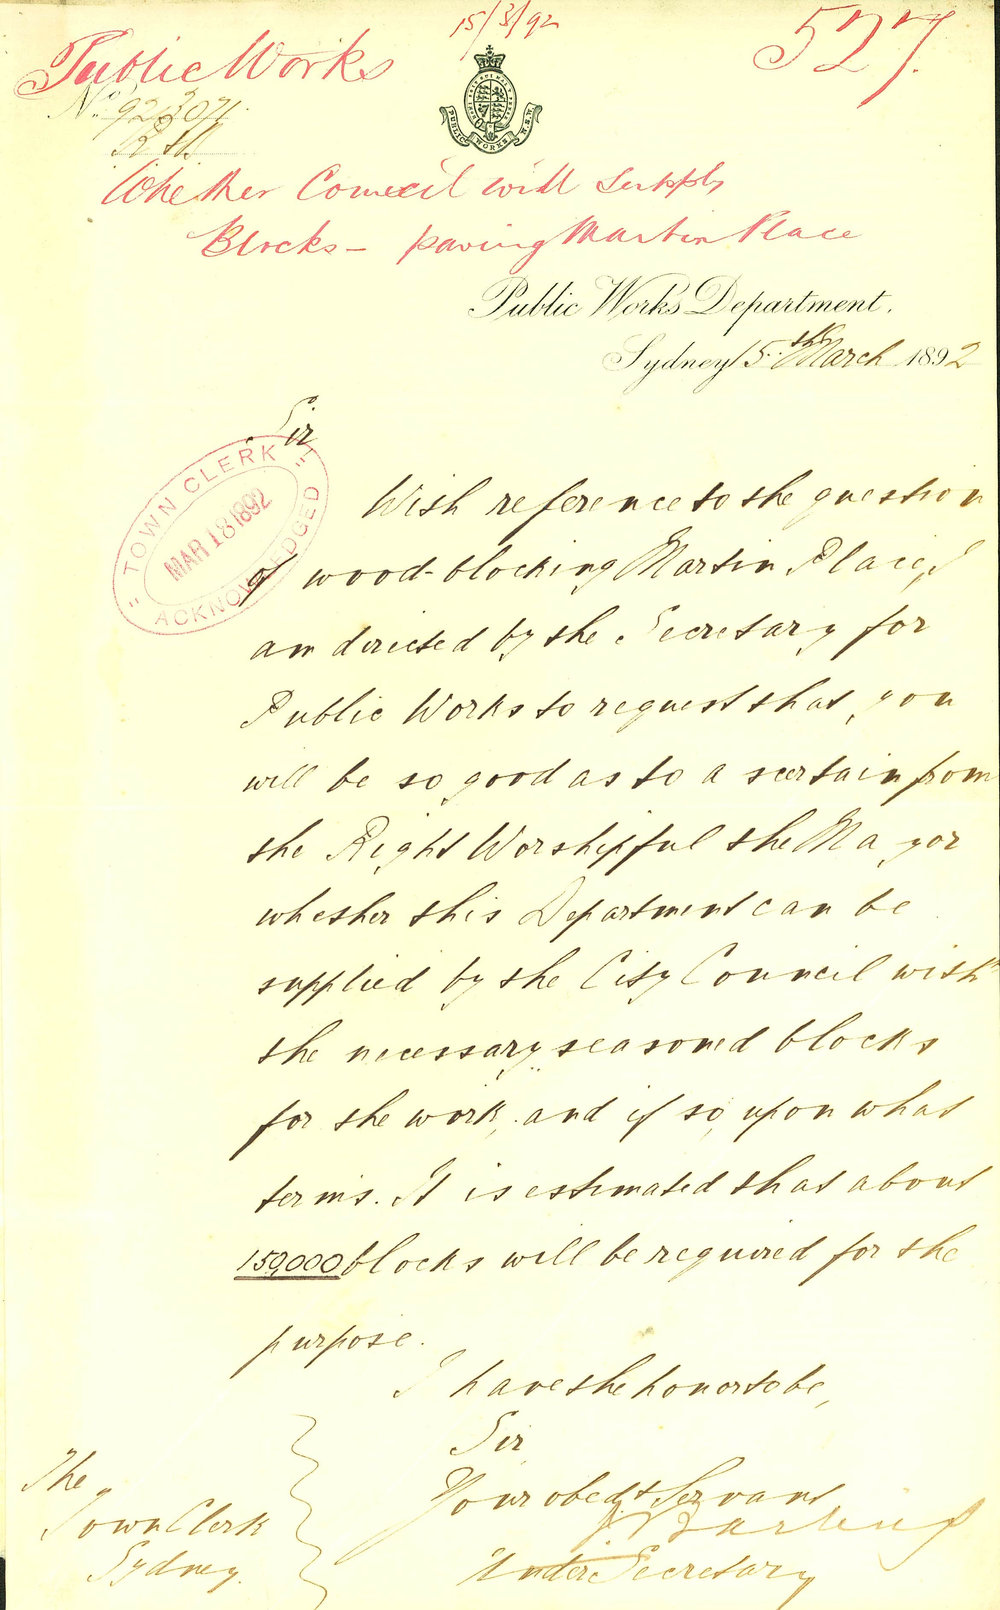 15/3/92
527.
Public Works
PUBLIC WORKS N.S.W.
No. 92/3071
Whether Council will supply
Blocks - paving Martin Place
Public Works Department,
Sydney 15th March 1892
Sir
"TOWN CLERK"
MAR 18 1892
ACKNOWLEDGED
With reference to the question
of wood-blocking Martin Place, I
am directed by the Secretary for
Public Works to request that, you
will be so good as to ascertain from
the Right Worshipful the Mayor
whether this Department can be
supplied by the City Council with
the necessary seasoned blocks
for the work, and if so, upon what
terms. It is estimated that about
150,000 blocks will be required for the
purpose.
I have the honor to be,
Sir
Your obedt Servant,
Under Secretary
The
Town Clerk
Sydney.